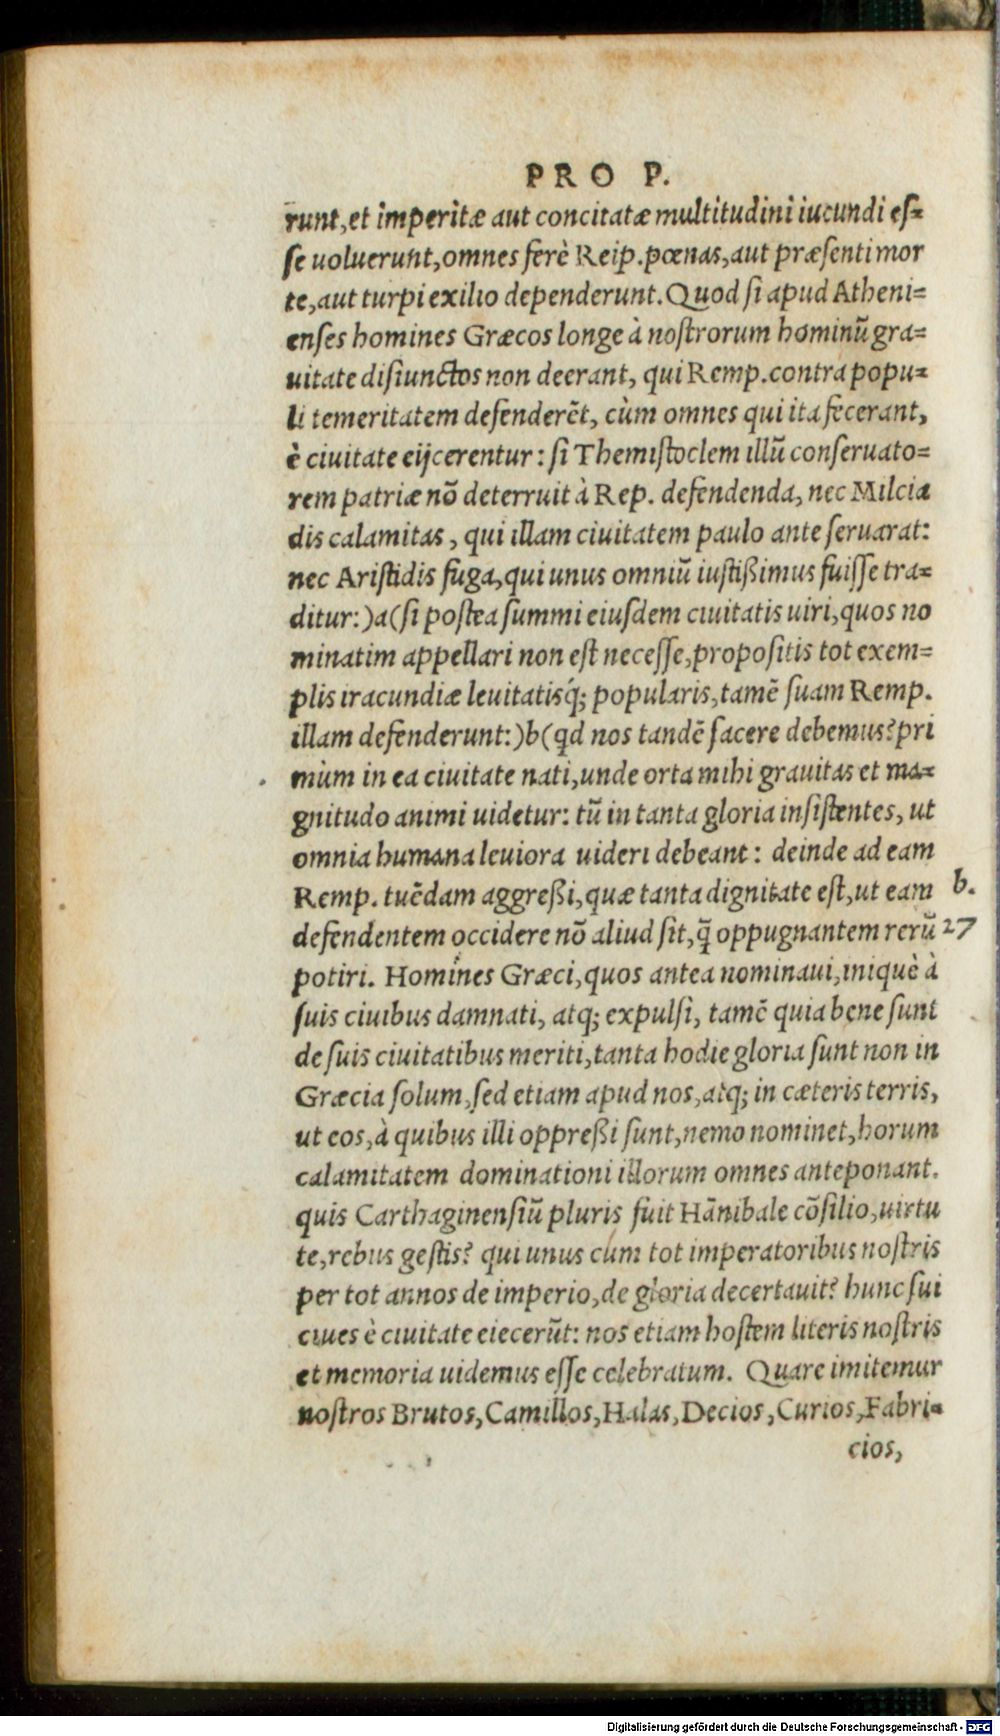 PRO P.
runt, et imperitæ aut concitatæ multitudini iucundi eſ=
ſe uoluerunt, omnes ferè Reip. pœnas, aut præſenti mor
te, aut turpi exilio dependerunt. Quod ſi apud Atheni=
enſes homines Græcos longe à noſtrorum hominũ gra=
uitate diſiunctos non deerant, qui Remp. contra popu=
li temeritatem defenderẽt, cùm omnes qui ita fecerant,
è ciuitate eijcerentur: ſi Themiſtoclem illũ conſeruato=
rem patriæ nõ deterruit à Rep. defendenda, nec Milcia
dis calamitas, qui illam ciuitatem paulo ante ſeruarat:
nec Ariſtidis fuga, qui unus omniũ iuſtißimus fuiſſe tra=
ditur:)a(ſi poſtea ſummi eiuſdem ciuitatis uiri, quos no
minatim appellari non eſt neceſſe, propoſitis tot exem=
plis iracundiæ leuitatisq́; popularis, tamẽ ſuam Remp.
illam defenderunt:)b(qd nos tandẽ facere debemus? pri
mùm in ea ciuitate nati, unde orta mihi grauitas et ma=
gnitudo animi uidetur: tũ in tanta gloria inſiſtentes, ut
omnia humana leuiora uideri debeant: deinde ad eam
Remp. tuẽdam aggreßi, quæ tanta dignitate eſt, ut eam b.
defendentem occidere nõ aliud ſit, q̃ oppugnantem rerũ 27
potiri. Homines Græci, quos antea nominaui, iniquè à
ſuis ciuibus damnati, atq; expulſi, tamẽ quia bene ſunt
de ſuis ciuitatibus meriti, tanta hodie gloria ſunt non in
Græcia ſolum, ſed etiam apud nos, atq; in cæteris terris,
ut eos, à quibus illi oppreßi ſunt, nemo nominet, horum
calamitatem dominationi illorum omnes anteponant.
quis Carthaginenſiũ pluris fuit Hãnibale cõſilio, uirtu
te, rebus geſtis? qui unus cùm tot imperatoribus noſtris
per tot annos de imperio, de gloria decertauit? hunc ſui
ciues è ciuitate eiecerũt: nos etiam hoſtem literis noſtris
et memoria uidemus eſſe celebratum. Quare imitemur
noſtros Brutos, Camillos, Halas, Decios, Curios, Fabri=
cios,
Digitalisierung gefördert durch die Deutsche Forschungsgemeinschaft - DFG